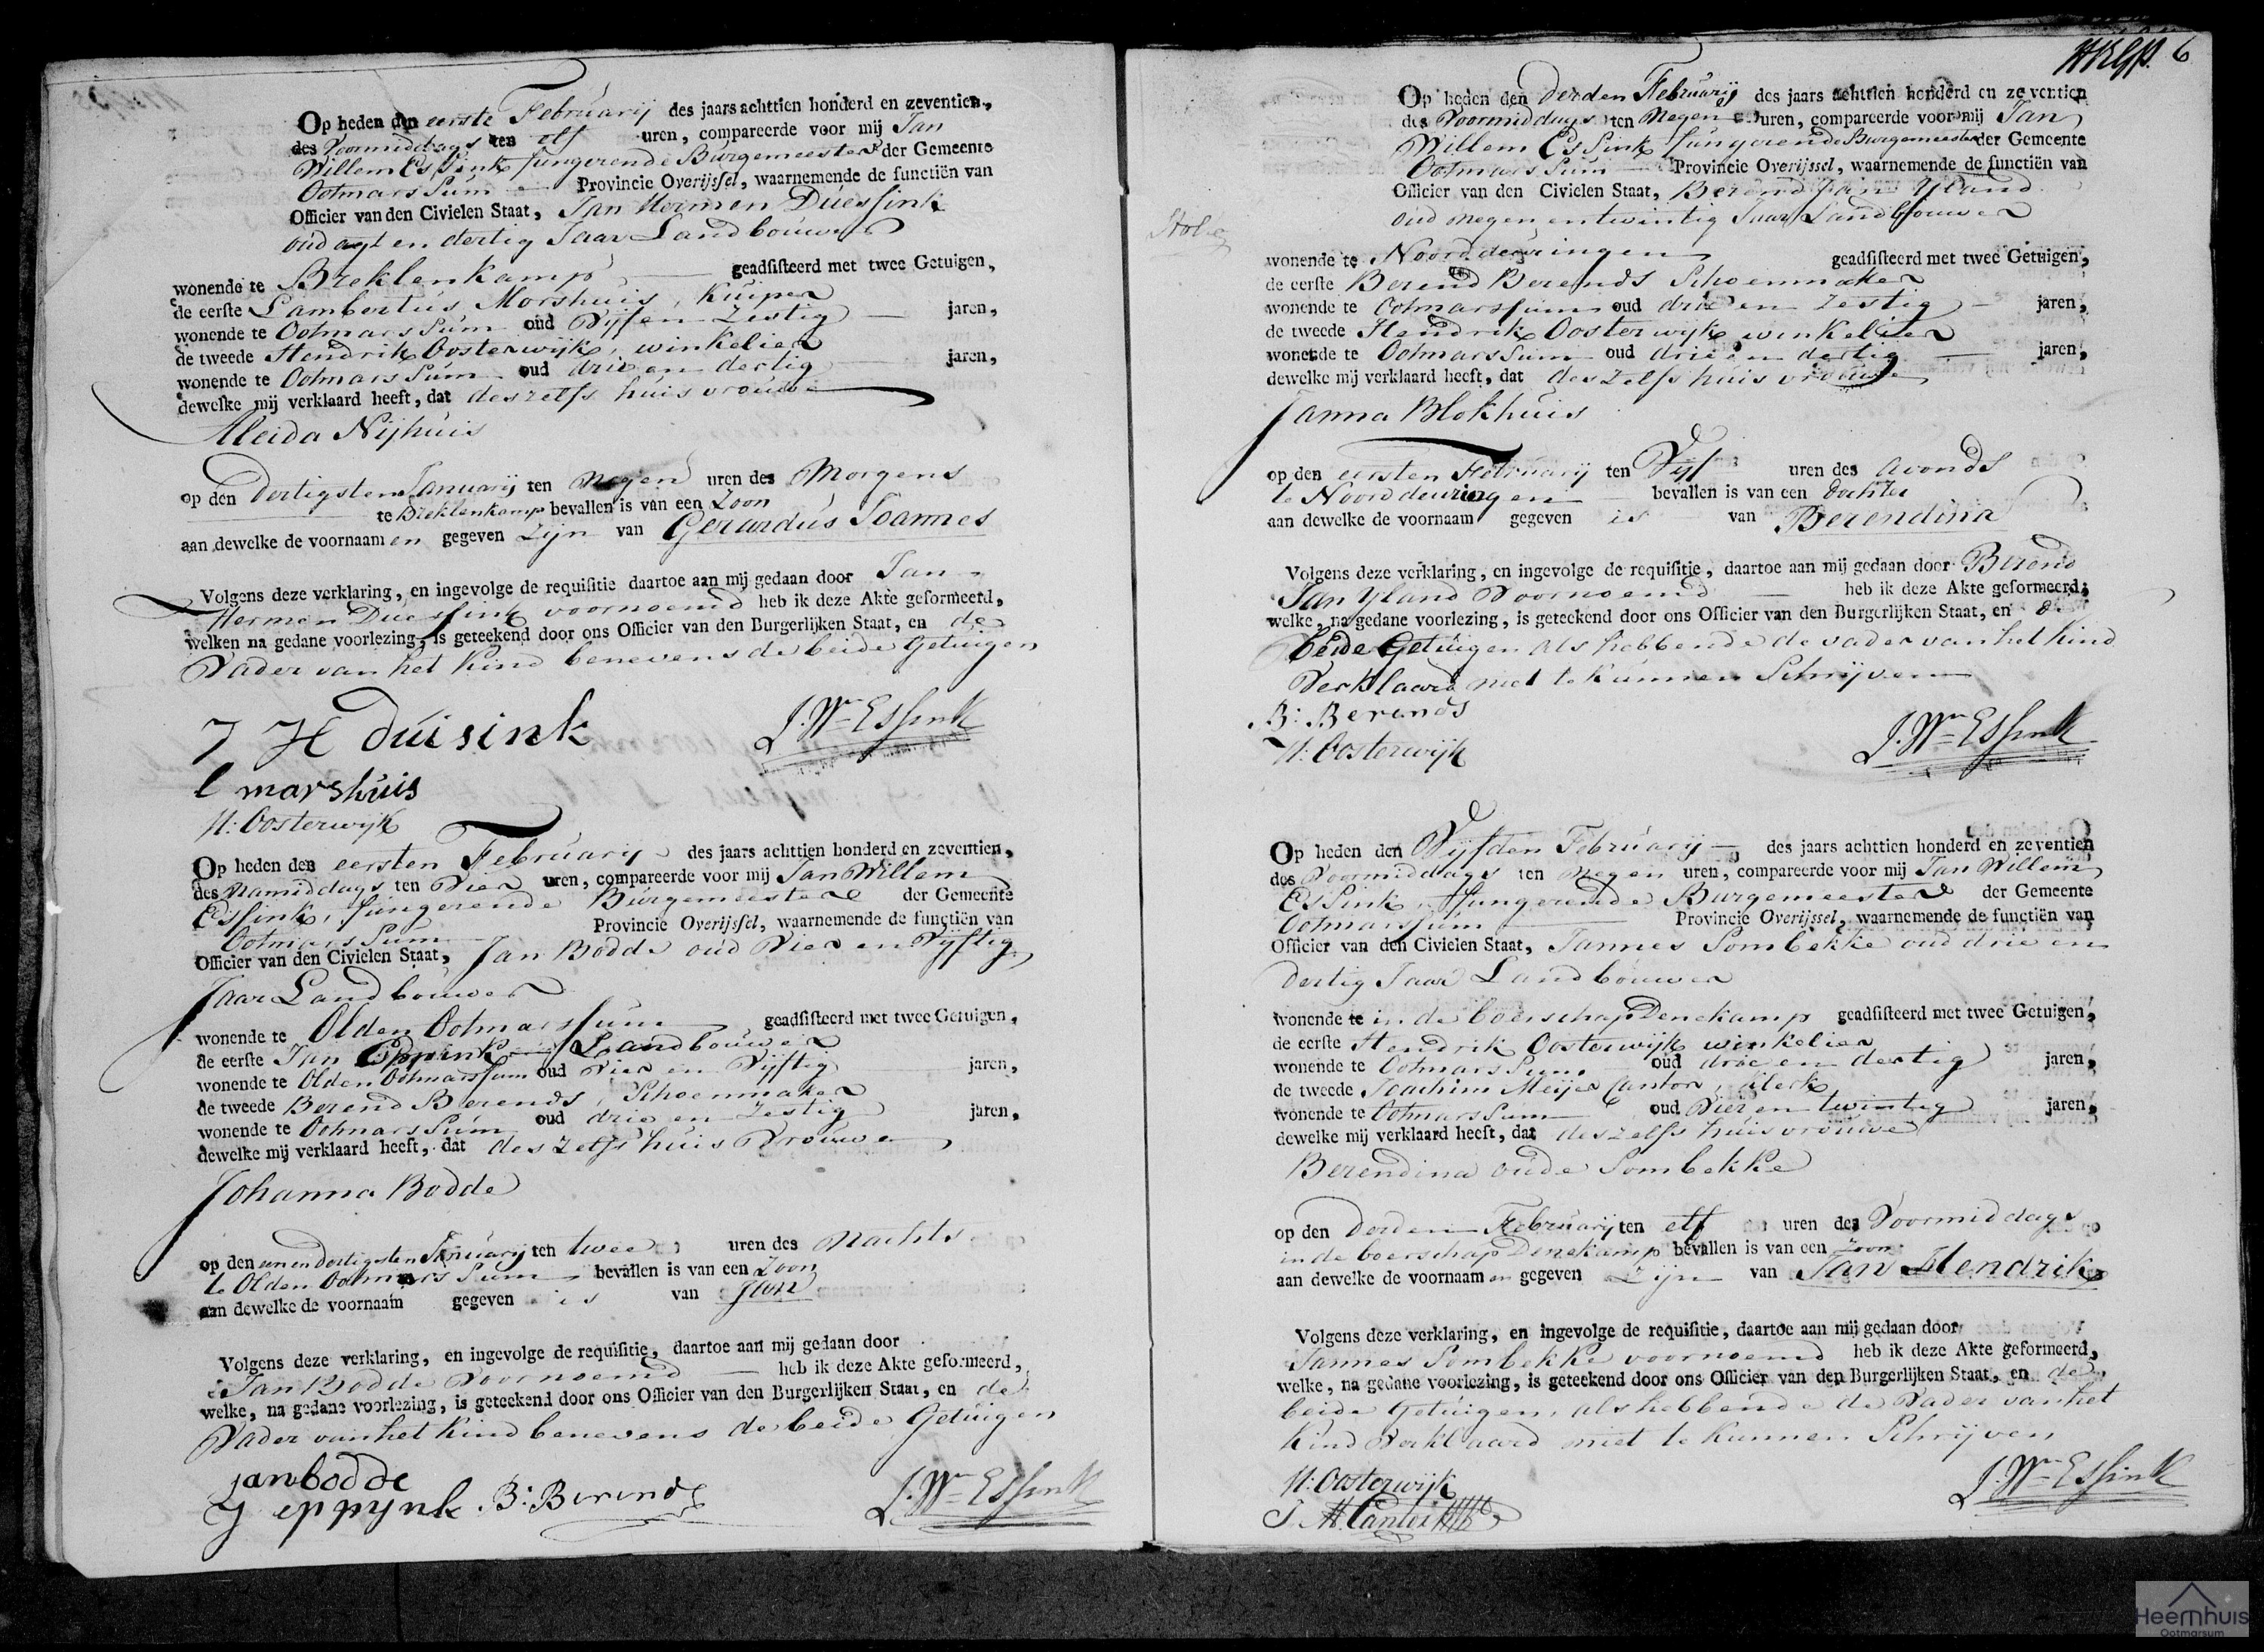 Op heden den eerste Februarij des jaars achttien honderd en zeventien,
des Voormiddags ten elf uren, compareerde voor mij Jan
Willem Essink fungerende Burgemeester der Gemeente
Ootmarssum Provincie Overijssel, waarnemende de functiën van
Officier van den Civielen Staat, Jan Hermen Duessink
oud agt en dertig Jaar Landbouwer
wonende te Breklenkamp geadsisteerd met twee Getuigen,
de eerste Lambertus Morshuis, Kuiper
wonende te Ootmarssum oud Vijf en Zestig jaren,
de tweede Hendrik Oosterwijk, winkelier
wonende te Ootmarssum oud drie en dertig jaren,
dewelke mij verklaard heeft, dat deszelfs huisvrouwe
Aleida Nijhuis
op den dertigsten Januarij ten Negen uren des Morgens
te Breklenkamp bevallen is van een Zoon
aan dewelke de voornaam en gegeven zijn van Gerardus Joannes
Volgens deze verklaring, en ingevolge de requisitie daartoe aan mij gedaan door Jan
Hermen Duessink voornoemd heb ik deze Akte geformeerd,
welken na gedane voorlezing, is geteekend door ons Officier van den Burgerlijken Staat, en de
Vader van het Kind benevens de beide Getuigen
J H duisink J. Wm Essink
l marshuis
H: Oosterwijk
Op heden den eersten Februarij des jaars achttien honderd en zeventien,
des Namiddags ten Vier uren, compareerde voor mij Jan Willem
Essink, fungerende Burgemeester der Gemeente
Ootmarssum Provincie Overijssel, waarnemende de functiën van
Officier van den Civielen Staat, Jan Bodde oud Vier en Vijftig
Jaar Landbouwer
wonende te Olden Ootmarssum geadsisteerd met twee Getuigen,
de eerste Jan Eppink Landbouwer
wonende te Olden Ootmarssum oud Vier en Vijftig jaren,
de tweede Berend Berends, Schoenmaker
wonende te Ootmarssum oud drie en Zestig jaren,
dewelke mij verklaard heeft, dat deszelfs huis Vrouwe
Johanna Bodde
op den eenendertigsten Januarij ten twee uren des Nachts
te Olden Ootmarssum bevallen is van een Zoon
aan dewelke de voornaam gegeven is van Jan
Volgens deze verklaring, en ingevolge de requisitie, daartoe aan mij gedaan door
Jan Bodde Voornoemd heb ik deze Akte geformeerd,
welke, na gedane voorlezing, is geteekend door ons Officier van den Burgerlijken Staat, en de
Vader van het Kind benevens de beide Getuigen
jan bodde
J eppynk B: Berends J. Wm Essink
6
Op heden den derden Februarij des jaars achttien honderd en zeventien
des Voormiddags ten Negen uren, compareerde voor mij Jan
Willem Essink fungerende Burgemeester der Gemeente
Ootmarssum Provincie Overijssel, waarnemende de functiën van
Officier van den Civielen Staat, Berend Jan Yland
oud negen en twintig Jaar Landbouwer
wonende te Noorddeuringen geadsisteerd met twee Getuigen,
de eerste Berend Berends Schoenmaker
wonende te Ootmarssum oud drie en Zestig jaren,
de tweede Hendrik Oosterwijk winkelier
wonende te Ootmarssum oud drie en dertig jaren,
dewelke mij verklaard heeft, dat deszelfs huisvrouwe
Janna Blokhuis
op den eersten Februarij ten Vijf uren des avonds
te Noorddeuringen bevallen is van een dochter
aan dewelke de voornaam gegeven is van Berendina
Volgens deze verklaring, en ingevolge de requisitie, daartoe aan mij gedaan door Berend
Jan Yland Voornoemd heb ik deze Akte geformeerd;
welke, na gedane voorlezing, is geteekend door ons Officier van den Burgerlijken Staat, en de
beide Getuigen als hebbende de vader van het Kind
Verklaard niet te kunnen Schrijven
B: Berends
H: Oosterwijk J. Wm Essink
Op heden den Vijfden Februarij des jaars achttien honderd en zeventien
des Voormiddags ten negen uren, compareerde voor mij Jan Willem
Essink, fungerende Burgemeester der Gemeente
Ootmarssum Provincie Overijssel, waarnemende de functiën van
Officier van den Civielen Staat, Jannes Sombekke oud drie en
dertig Jaar Landbouwer
wonende te in de boerschap Denekamp geadsisteerd met twee Getuigen,
de eerste Hendrik Oosterwijk winkelier
wonende te Ootmarssum oud drie en dertig jaren,
de tweede Joachim Meijer Cantor, klerk
wonende te Ootmarssum oud Vier en twintig jaren,
dewelke mij verklaard heeft, dat deszelfs huisvrouwe
Berendina oude Sombekke
op den derden Februarij ten elf uren des Voormiddags
in de boerschap Denekamp bevallen is van een Zoon
aan dewelke de voornaam en gegeven Zijn van Jan Hendrik
Volgens deze verklaring, en ingevolge de requisitie, daartoe aan mij gedaan door
Jannes Sombekke voornoemd heb ik deze Akte geformeerd,
welke, na gedane voorlezing, is geteekend door ons Officier van den Burgerlijken Staat, en de
beide Getuigen, als hebbende de Vader van het
Kind Verklaard niet te kunnen Schrijven
H: Oosterwijk J. Wm Essink
J. M. Cantor
Heemhuis
Ootmarsum